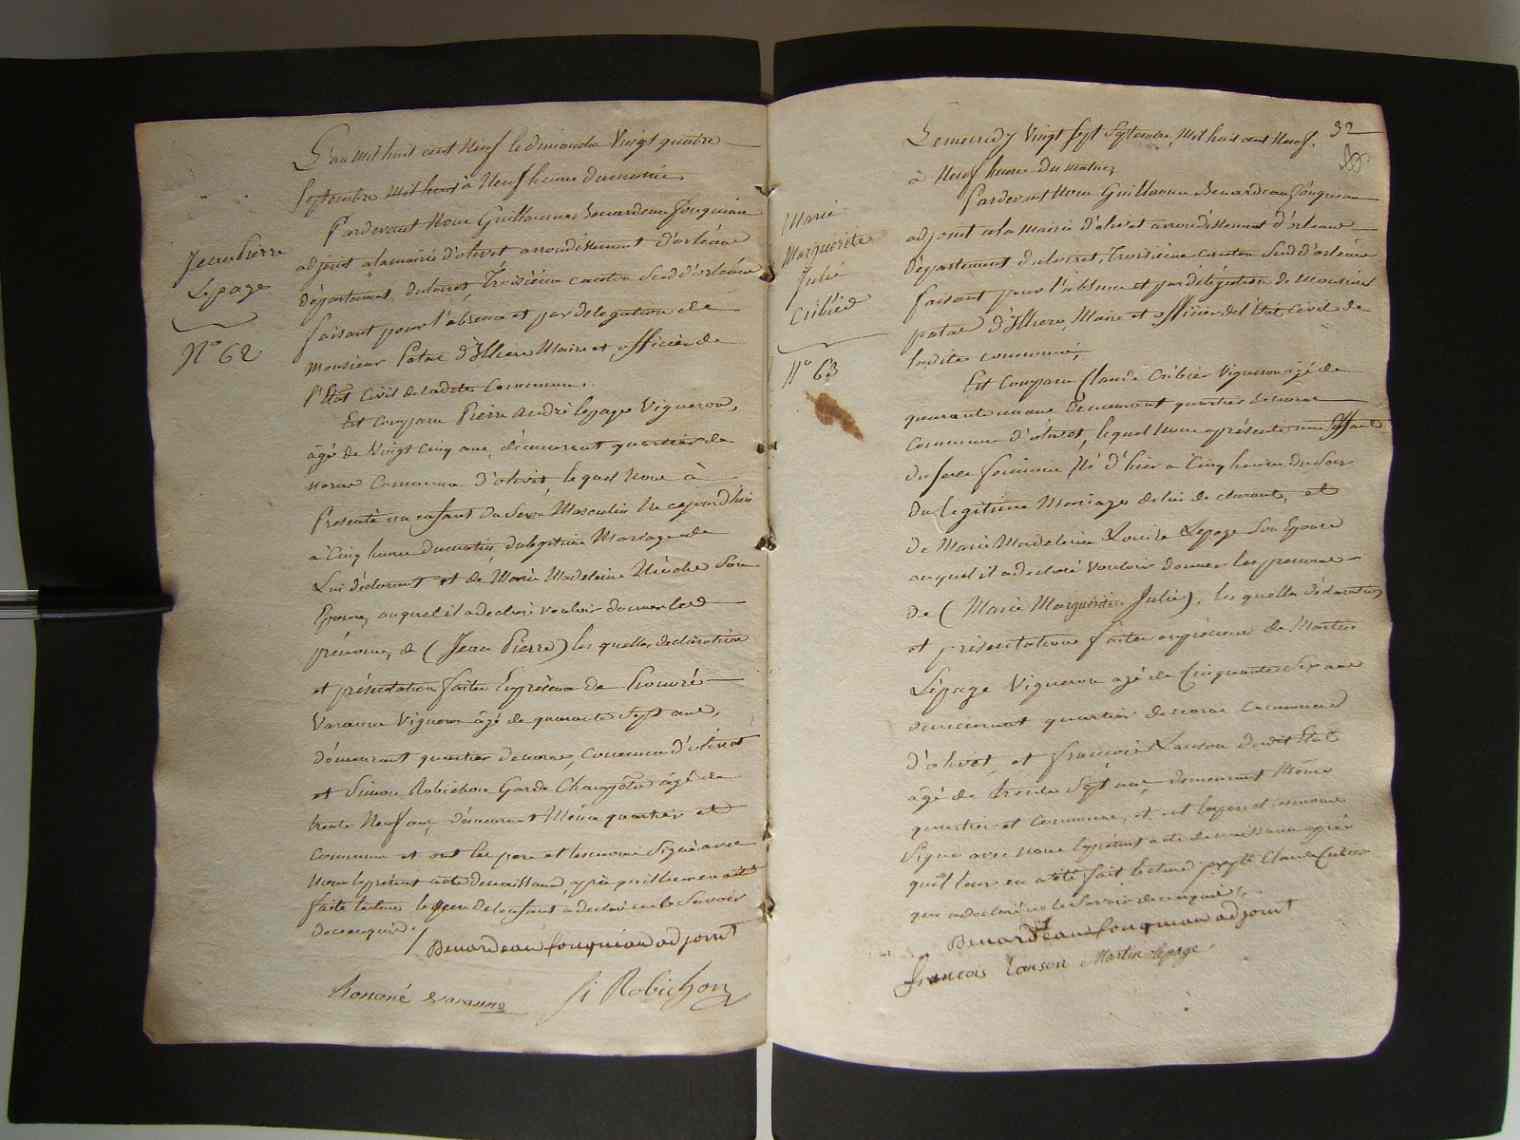 Jean Pierre
Lepage
N° 62
L'an Mil huit cent Neuf le dimanche Vingt quatre
Septembre Mil huit à Neuf heure du matin
Pardevant Nous Guillaume Benardeau fouqueau
adjoint à la mairie d'olivet arrondissement d'orleans
département du loiret, Troisième canton Sud d'orléans
faisant pour l'absence et par délégation de
monsieur Patas d'Illiers Maire et officier de
l'État Civil de ladite Commune.
Est Comparu Pierre André lepage Vigneron,
âgé de Vingt Cinq ans, démeurant quartier de
Commune d'olivet lequel Nous à
Présenté un enfant du Sexe Masculin Né cejourd'hui
à Cinq heure du matin, du légitime Mariage de
Lui déclarant et de Marie Madeleine Son
Epouse, auquel il a declaré vouloir donner les
prénoms, de (Jean Pierre) les quelles déclaration
et présentation faites En présence de honoré
Varanne Vigneron âgé de quarante Sept ans,
démeurant quartier de commune d'olivet
et Simon Robichon Garde Champêtre âgé de
trente Neuf ans, démeurant Même quartier et
Commune et ont les pere et temoins Signé avec
Nous le présent acte de naissance, après
faite lecture le pere de l'enfant a declaré ne le Savoir
de ce enquis.
Benardeau fouqueau adjoint
honoré varanne Si Robichon
32
Marie
Marguerite
Julie
Cribier
N° 63
Le mercredy Vingt Sept Septembre Mil huit cent Neuf.
à Neuf heure du matin,
Pardevant Nous Guillaume Benardeau fouqueau
adjoint à la Mairie d'olivet arrondissement d'orleans
Département du loiret, Troisième canton Sud d'orléans
faisant pour l'absence et par délégation de Monsieur
patas d'Illiers, Maire et officier de l'État Civil de
ladite commune,
Est Comparu Claude Cribier Vigneron âgé de
quarante un ans Demeurant quartier de
Commune d'olivet, lequel Nous a présenté un Enfant
du Sexe féminin Né d'hier à Cinq heures du Soir
Du légitime Mariage de lui declarant, et
de Marie Madeleine Louise Lepage Son Epouse
auquel il a declaré Vouloir donner les prénoms
de (Marie Marguerite Julie), les quelles déclaration
et présentation faites en présence de Martin
Lepage Vigneron âgé de Cinquante Six ans
demeurant quartier de Commune
d'olivet, et francois Lanson
âgé de trente Sept ans, demeurant Même
quartier et Commune, et ont les pere et temoins
Signé avec nous le présent acte de naissance après
qu'il leur en a été fait lecture Claude Cribier
qui a declaré ne le Savoir de ce enquis.
Benardeau fouqueau adjoint
francois Lanson Martin lepage